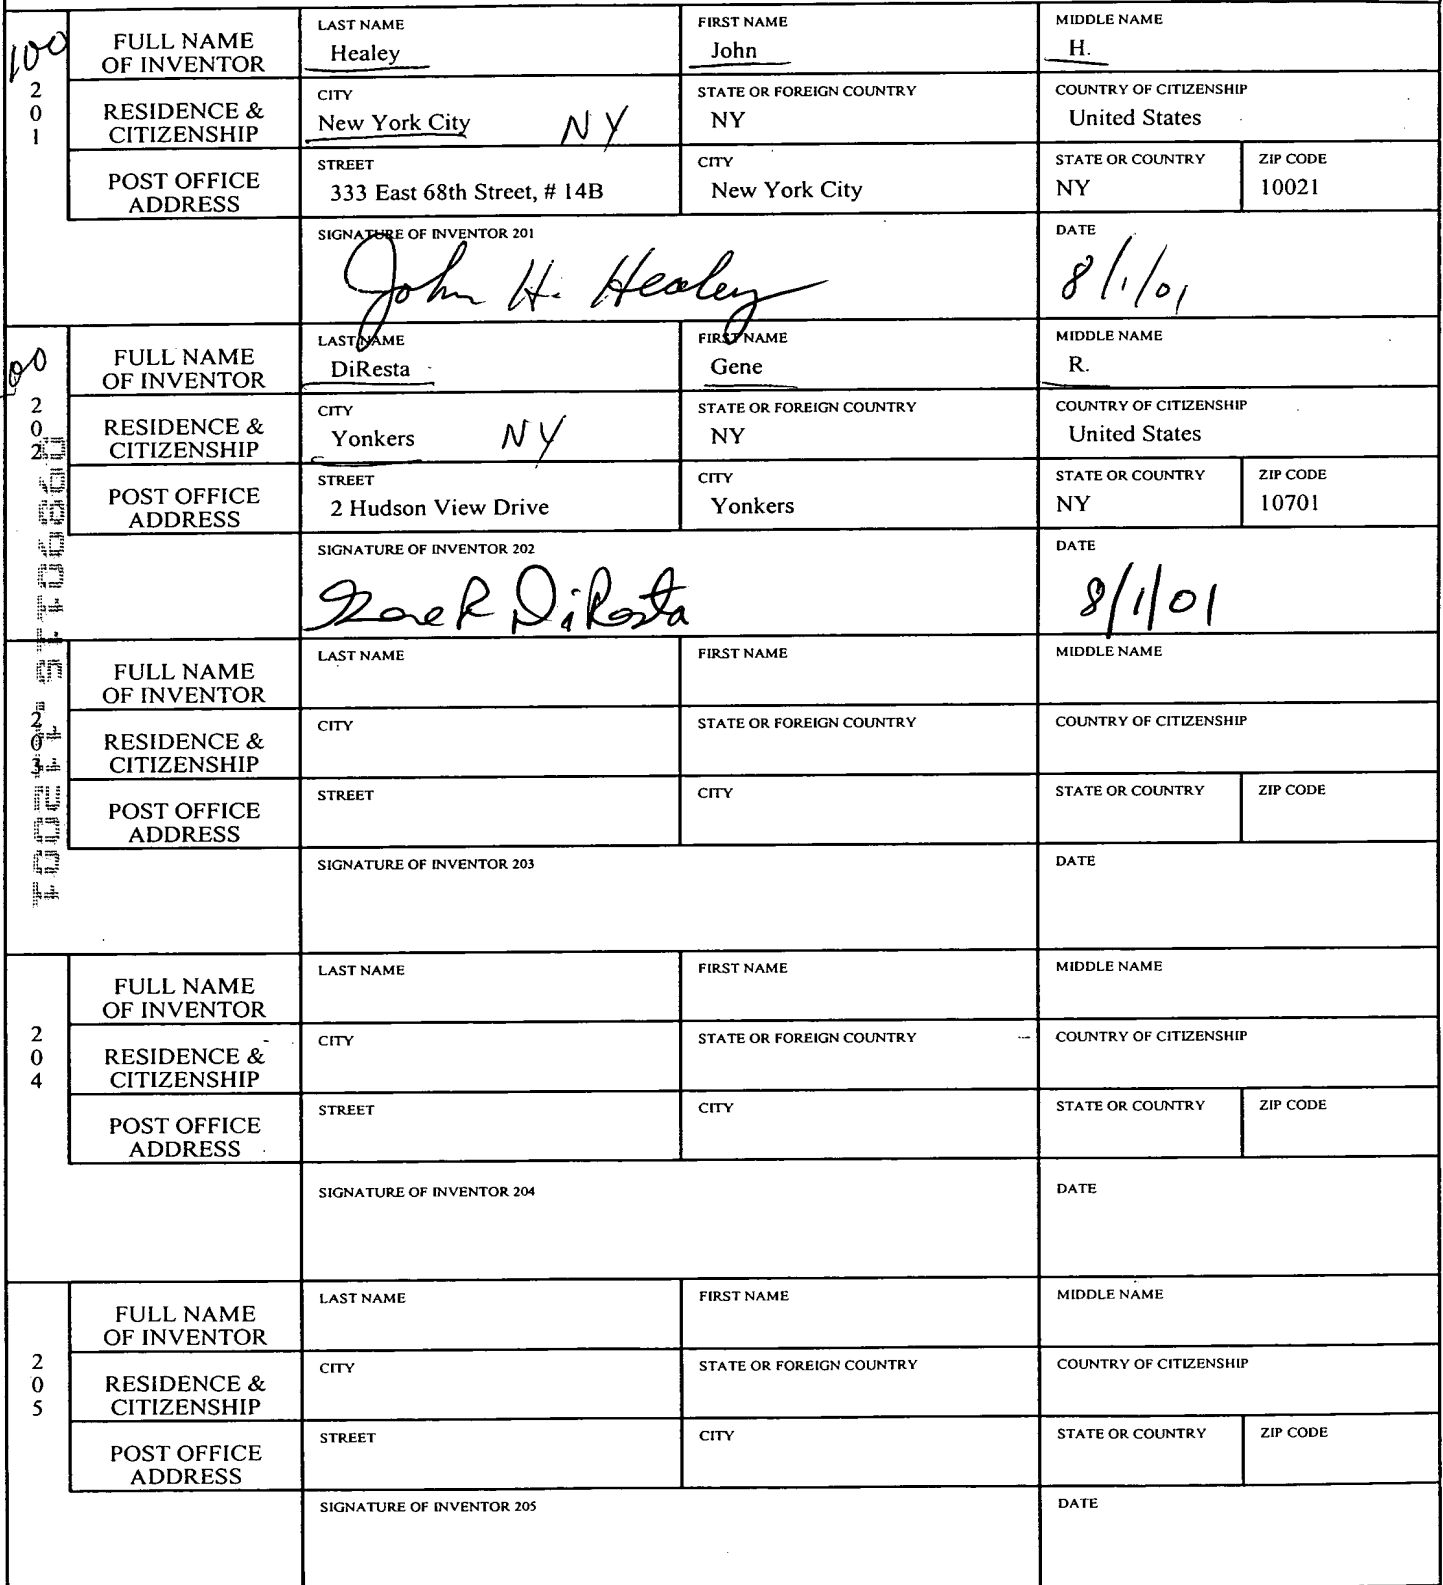 100
201
FULL NAME OF INVENTOR
LAST NAME
Healey
FIRST NAME
John
MIDDLE NAME
H.
RESIDENCE & CITIZENSHIP
CITY
New York City NY
STATE OR FOREIGN COUNTRY
NY
COUNTRY OF CITIZENSHIP
United States
POST OFFICE ADDRESS
STREET
333 East 68th Street, # 14B
CITY
New York City
STATE OR COUNTRY
NY
ZIP CODE
10021
SIGNATURE OF INVENTOR 201
John H. Healey
DATE
8/1/01
202
FULL NAME OF INVENTOR
LAST NAME
DiResta
FIRST NAME
Gene
MIDDLE NAME
R.
RESIDENCE & CITIZENSHIP
CITY
Yonkers NY
STATE OR FOREIGN COUNTRY
NY
COUNTRY OF CITIZENSHIP
United States
POST OFFICE ADDRESS
STREET
2 Hudson View Drive
CITY
Yonkers
STATE OR COUNTRY
NY
ZIP CODE
10701
SIGNATURE OF INVENTOR 202
Gene R DiResta
DATE
8/1/01
203
FULL NAME OF INVENTOR
LAST NAME
FIRST NAME
MIDDLE NAME
RESIDENCE & CITIZENSHIP
CITY
STATE OR FOREIGN COUNTRY
COUNTRY OF CITIZENSHIP
POST OFFICE ADDRESS
STREET
CITY
STATE OR COUNTRY
ZIP CODE
SIGNATURE OF INVENTOR 203
DATE
204
FULL NAME OF INVENTOR
LAST NAME
FIRST NAME
MIDDLE NAME
RESIDENCE & CITIZENSHIP
CITY
STATE OR FOREIGN COUNTRY
COUNTRY OF CITIZENSHIP
POST OFFICE ADDRESS
STREET
CITY
STATE OR COUNTRY
ZIP CODE
SIGNATURE OF INVENTOR 204
DATE
205
FULL NAME OF INVENTOR
LAST NAME
FIRST NAME
MIDDLE NAME
RESIDENCE & CITIZENSHIP
CITY
STATE OR FOREIGN COUNTRY
COUNTRY OF CITIZENSHIP
POST OFFICE ADDRESS
STREET
CITY
STATE OR COUNTRY
ZIP CODE
SIGNATURE OF INVENTOR 205
DATE